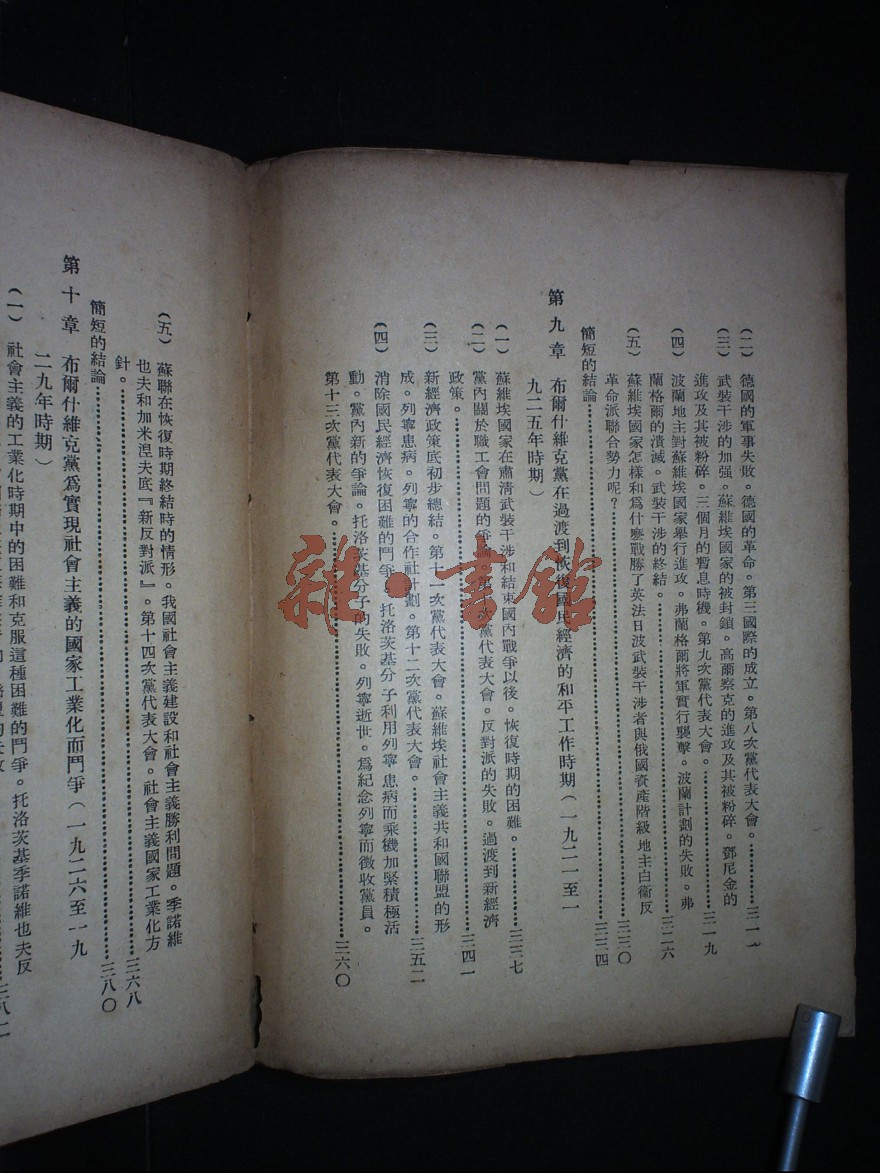 (二) 德國的軍事失敗。德國的革命。第三國際的成立。第八次黨代表大會。…………三一
(三) 武裝干涉的加强。蘇維埃國家的被封鎖。高爾察克的進攻及其被粉碎。鄧尼金的
進攻及其被粉碎。三個月的暫息時機。第九次黨代表大會。…………三一九
(四) 波蘭地主對蘇維埃國家舉行進攻。弗蘭格爾將軍實行襲擊。波蘭計劃的失敗。弗
蘭格爾的潰滅。武裝干涉的終結。…………三二六
(五) 蘇維埃國家怎樣和爲什麽戰勝了英法日波武裝干涉者與俄國資產階級地主白衞反
革命派聯合勢力呢?…………三三〇
簡短的結論…………三三四
第九章 布爾什維克黨在過渡到恢復國民經濟的和平工作時期(一九二一至一
九二五年時期)
(一) 蘇維埃國家在肅清武裝干涉和結束國內戰爭以後。恢復時期的困難。…………三三七
(二) 黨內關於職工會問題的爭論。第十次黨代表大會。反對派的失敗。過渡到新經濟
政策。…………三四一
(三) 新經濟政策底初步總結。第十一次黨代表大會。蘇維埃社會主義共和國聯盟的形
成。列寧患病。列寧的合作社計劃。第十二次黨代表大會。…………三五二
(四) 消除國民經濟恢復困難的鬥爭。托洛茨基分子利用列寧患病而乘機加緊積極活
動。黨內新的爭論。托洛茨基分子的失敗。列寧逝世。爲紀念列寧而徵收黨員。
第十三次黨代表大會。…………三六〇
(五) 蘇聯在恢復時期終結時的情形。我國社會主義建設和社會主義勝利問題。季諾維
也夫和加米涅夫底『新反對派』。第十四次黨代表大會。社會主義國家工業化方
針。…………三六八
簡短的結論…………三八〇
第十章 布爾什維克黨爲實現社會主義的國家工業化而鬥爭(一九二六至一九
二九年時期)
(一) 社會主義的工業化時期中的困難和克服這種困難的鬥爭。托洛茨基季諾維也夫反
雜·書館